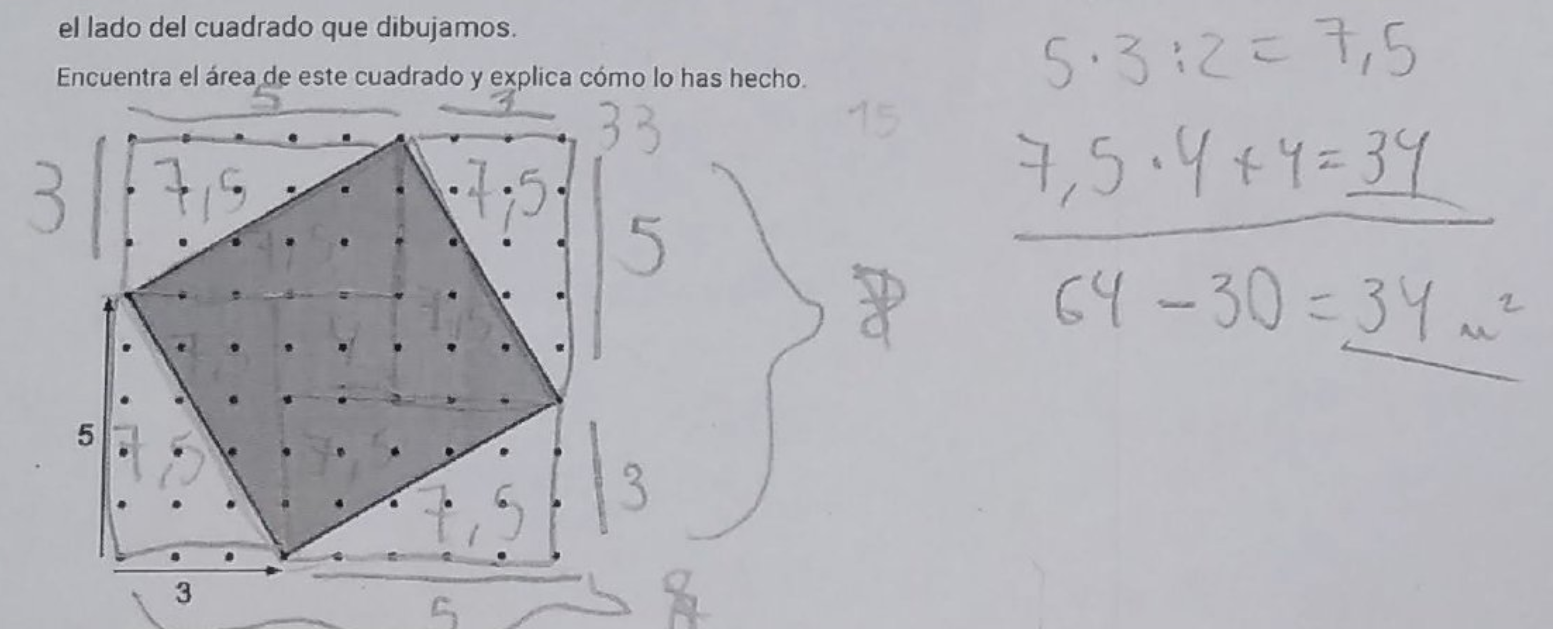 el lado del cuadrado que dibujamos.
Encuentra el área de este cuadrado y explica cómo lo has hecho.
5
33
15
3
7,5
7,5
5
4
5
7,5
7,5
7,5
3
3
5
5·3:2 = 7,5
7,5·4+4=34
64-30=34 u²